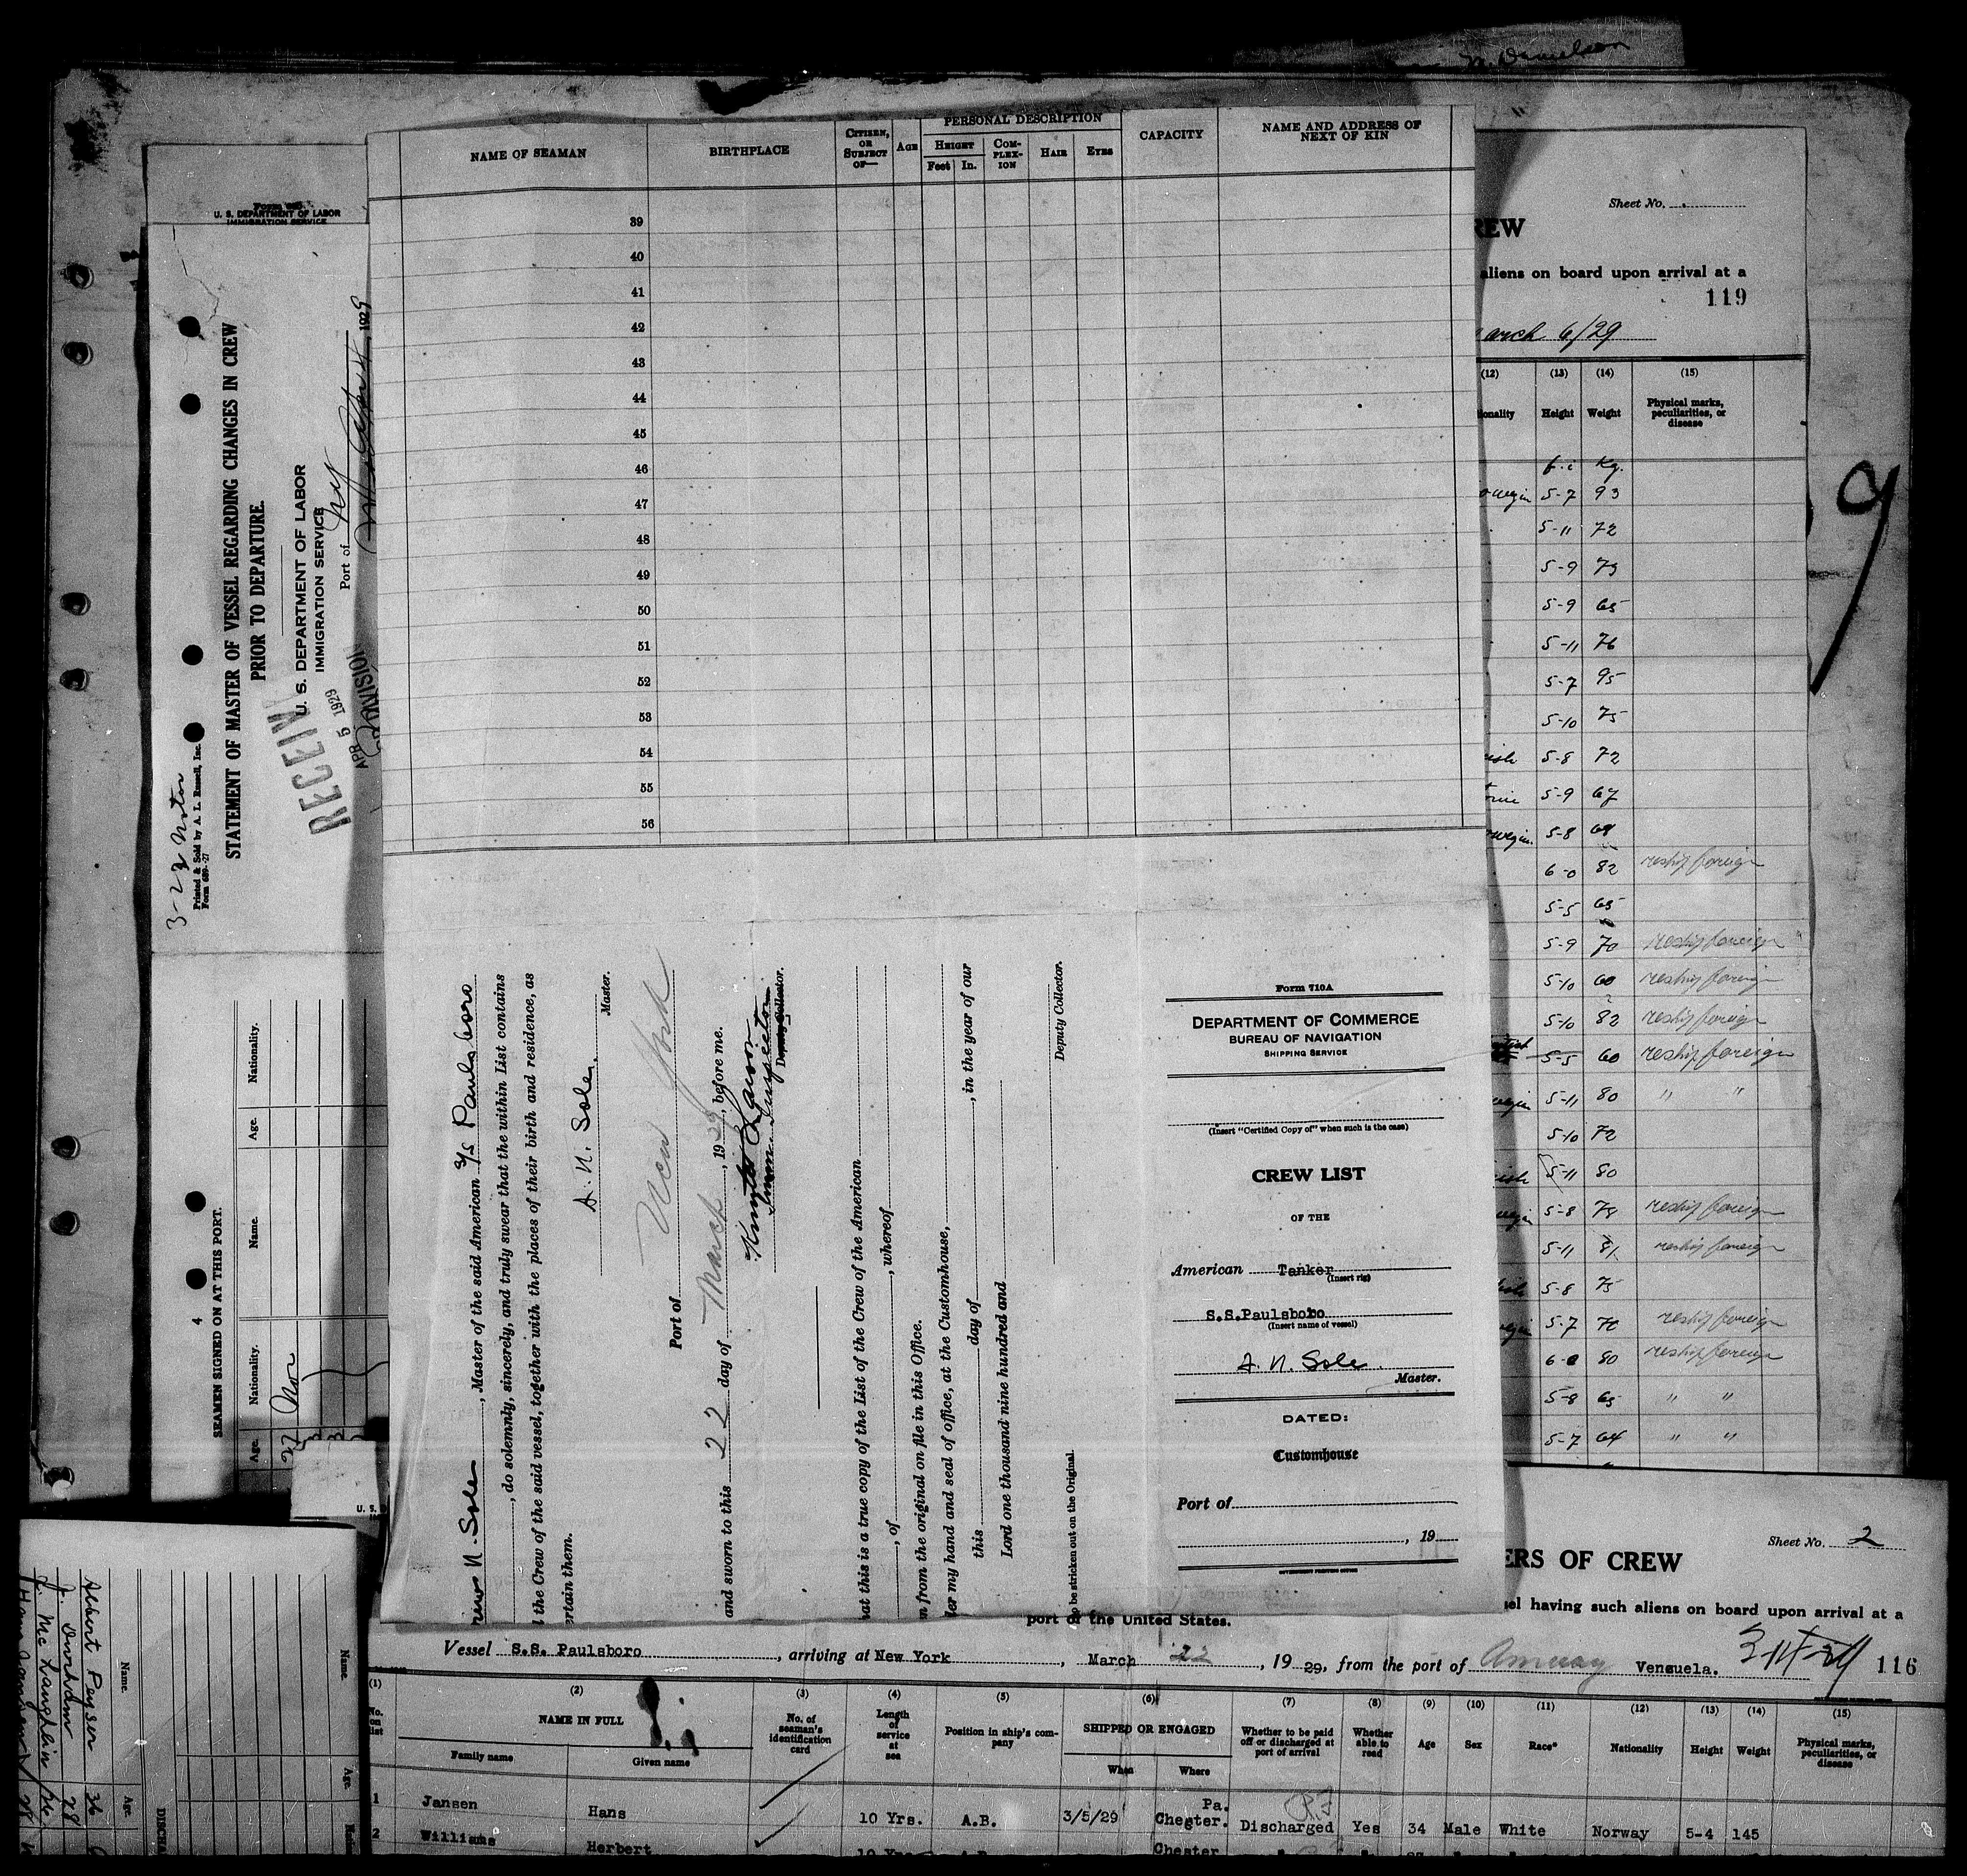 Danielson
NAME OF SEAMAN
BIRTHPLACE
CITIZEN, OR SUBJECT OF—
AGE
PERSONAL DESCRIPTION
HEIGHT
Feet In.
COMPLEXION
HAIR
EYES
CAPACITY
NAME AND ADDRESS OF NEXT OF KIN
39
40
41
42
43
44
45
46
47
48
49
50
51
52
53
54
55
56
U. S. DEPARTMENT OF LABOR
IMMIGRATION SERVICE
3-22
Printed & Sold by A. L. Russell, Inc.
Form 689-27
STATEMENT OF MASTER OF VESSEL REGARDING CHANGES IN CREW
PRIOR TO DEPARTURE.
U. S. DEPARTMENT OF LABOR
IMMIGRATION SERVICE
Port of NY
1929
APR 5 1929
DIVISION
4
SEAMEN SIGNED ON AT THIS PORT.
Age. Nationality. Name. Age. Nationality.
27 Nor
Name.
Albert Peyser 36
J. 28
J. McLaughlin
Name. Age.
Sole, Master of the said American S/S Paulsboro
, do solemnly, sincerely, and truly swear that the within List contains
the Crew of the said vessel, together with the places of their birth and residence, as
ertain them.
A. N. Sole.
Master.
Port of New York
and sworn to this 22 day of March, 1929, before me.
Inspector
Deputy Collector.
hat this is a true copy of the List of the Crew of the American
, of , whereof
from the original on file in this Office.
er my hand and seal of office, at the Customhouse,
this day of , in the year of our
Lord one thousand nine hundred and
Deputy Collector.
be stricken out on the Original
Form 710A
DEPARTMENT OF COMMERCE
BUREAU OF NAVIGATION
SHIPPING SERVICE
(Insert "Certified Copy of" when such is the case)
CREW LIST
OF THE
American Tanker
(Insert rig)
S.S.Paulsboro
(Insert name of vessel)
A. N. Sole
Master.
DATED:
Customhouse
Port of
, 19
GOVERNMENT PRINTING OFFICE
Sheet No.
REW
aliens on board upon arrival at a
119
arch 6/29
(12) (13) (14) (15)
ionality Height Weight Physical marks, peculiarities, or disease
Kg.
5-7 93
5-11 72
5-9 73
5-9 65
5-11 76
5-7 95
5-10 75
5-8 72
5-9 67
5-8 68
6-0 82 reship foreign
5-5 65
5-9 70 reship foreign
5-10 60 reship foreign
5-10 82 reship foreign
5-5 60 reship foreign
5-11 80 " "
5-10 72
5-11 80
5-8 78 reship foreign
5-11 81 reship foreign
5-8 75
5-7 70 reship foreign
6-0 80 reship foreign
5-8 65 " "
5-7 64 " "
9
Sheet No. 2
ERS OF CREW
sel having such aliens on board upon arrival at a
port of the United States.
Vessel S.S. Paulsboro, arriving at New York, March 22, 1929, from the port of Amuay Venzuela.
116
(1) (2) (3) (4) (5) (6) (7) (8) (9) (10) (11) (12) (13) (14) (15)
No. on list
NAME IN FULL
Family name Given name
No. of seaman's identification card
Length of service at sea
Position in ship's company
SHIPPED OR ENGAGED
When Where
Whether to be paid off or discharged at port of arrival
Whether able to read
Age Sex Race* Nationality Height Weight
Physical marks, peculiarities, or disease
1 Jansen Hans 10 Yrs. A.B. 3/5/29 Pa. Chester. Discharged Yes 34 Male White Norway 5-4 145
2 Williams Herbert 10 Yrs A.B. Chester